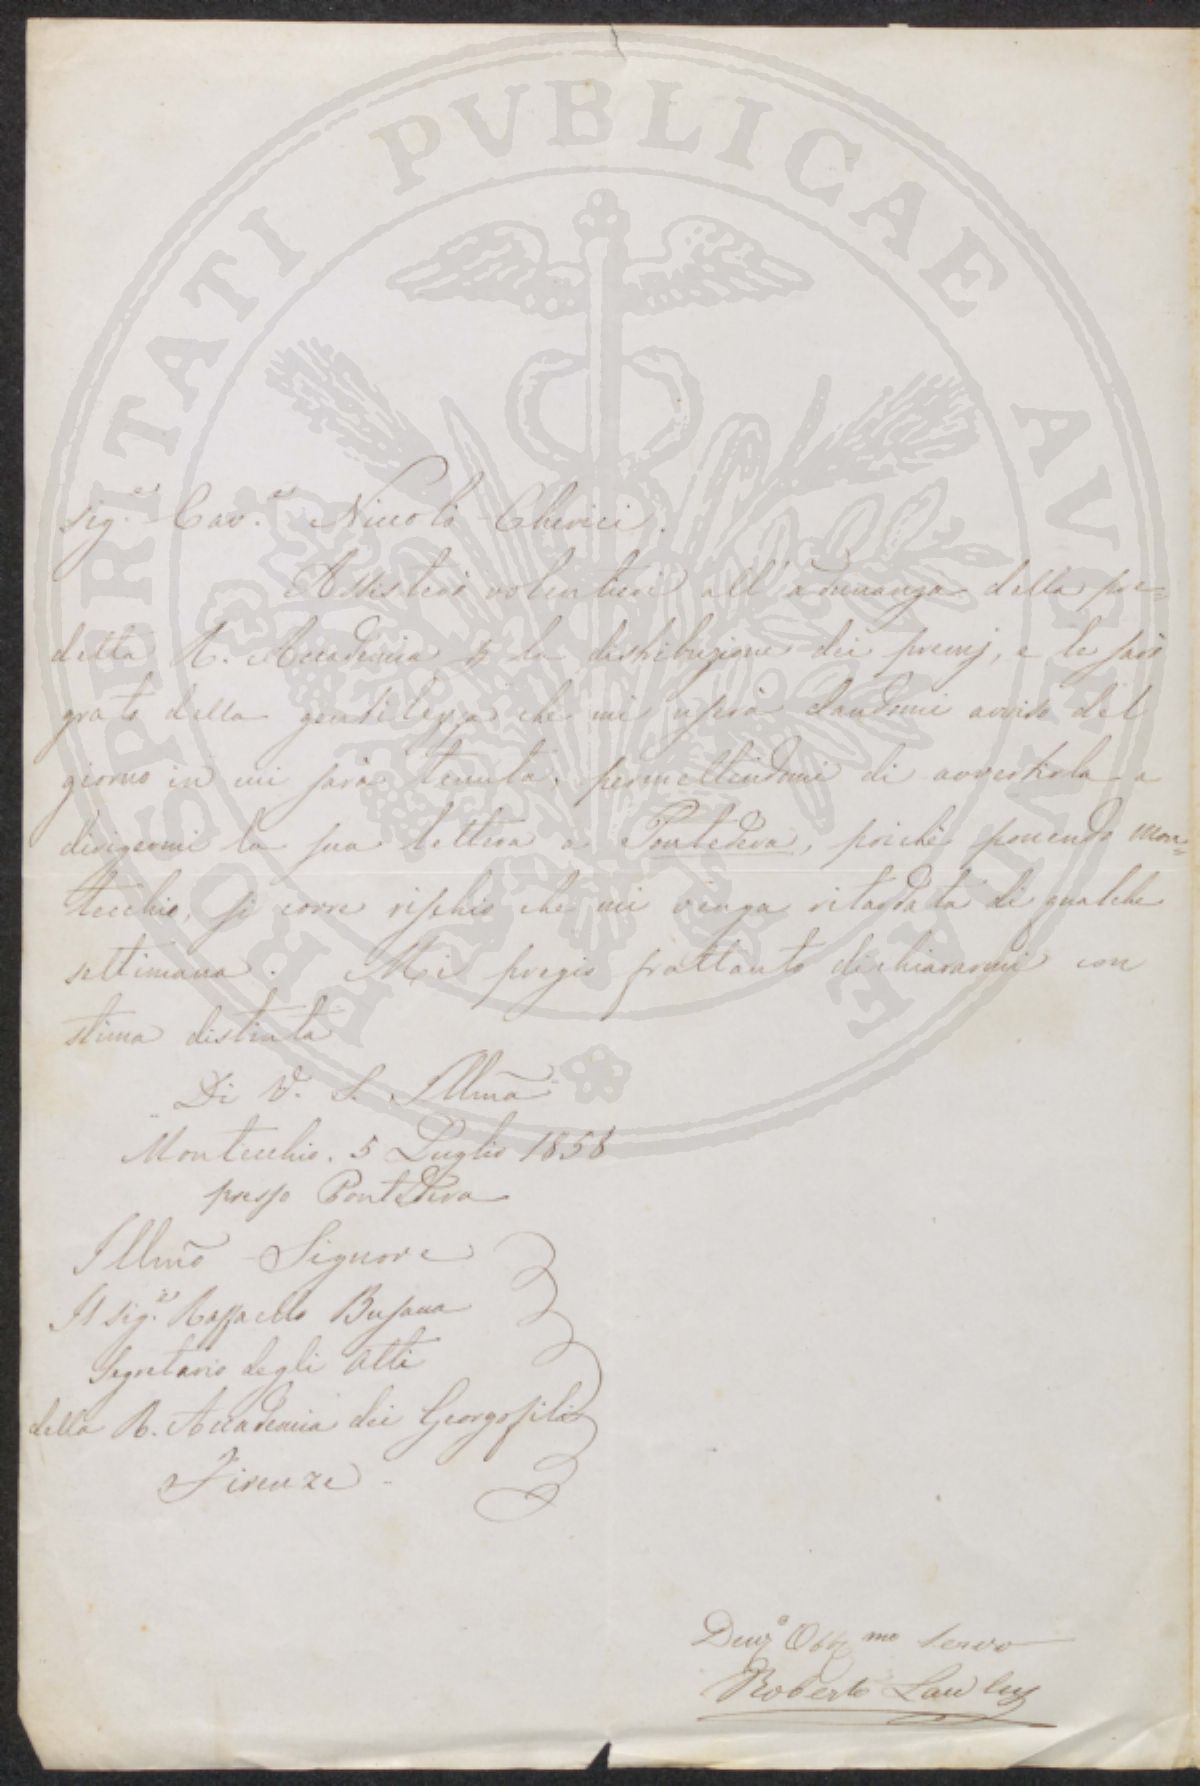 PROSPERITATI PVBLICAE AVGENDAE
Sig.re Cav.re Niccolò Clerici.
Assisterò volentieri all'adunanza della pre=
detta R. Accademia p la distribuzione dei premj, e le sarò
grato della gentilezza che mi userà dandomi avviso del
giorno in cui sarà tenuta, permettendomi di avvertirla a
dirigermi la sua lettera a Pontedera, poichè ponendo Mon=
tecchio, si corre rischio che mi venga ritardata di qualche
settimana. Mi pregio frattanto dichiararmi con
stima distinta
Di V. S. Illma
Montecchio. 5 Luglio 1858
presso Pontedera
Illmo Signore
Il Sig.re Raffaello Busacca
Segretario degli Atti
della R. Accademia dei Georgofili
Firenze
Devo Obbmo Servo
Roberto Lawley